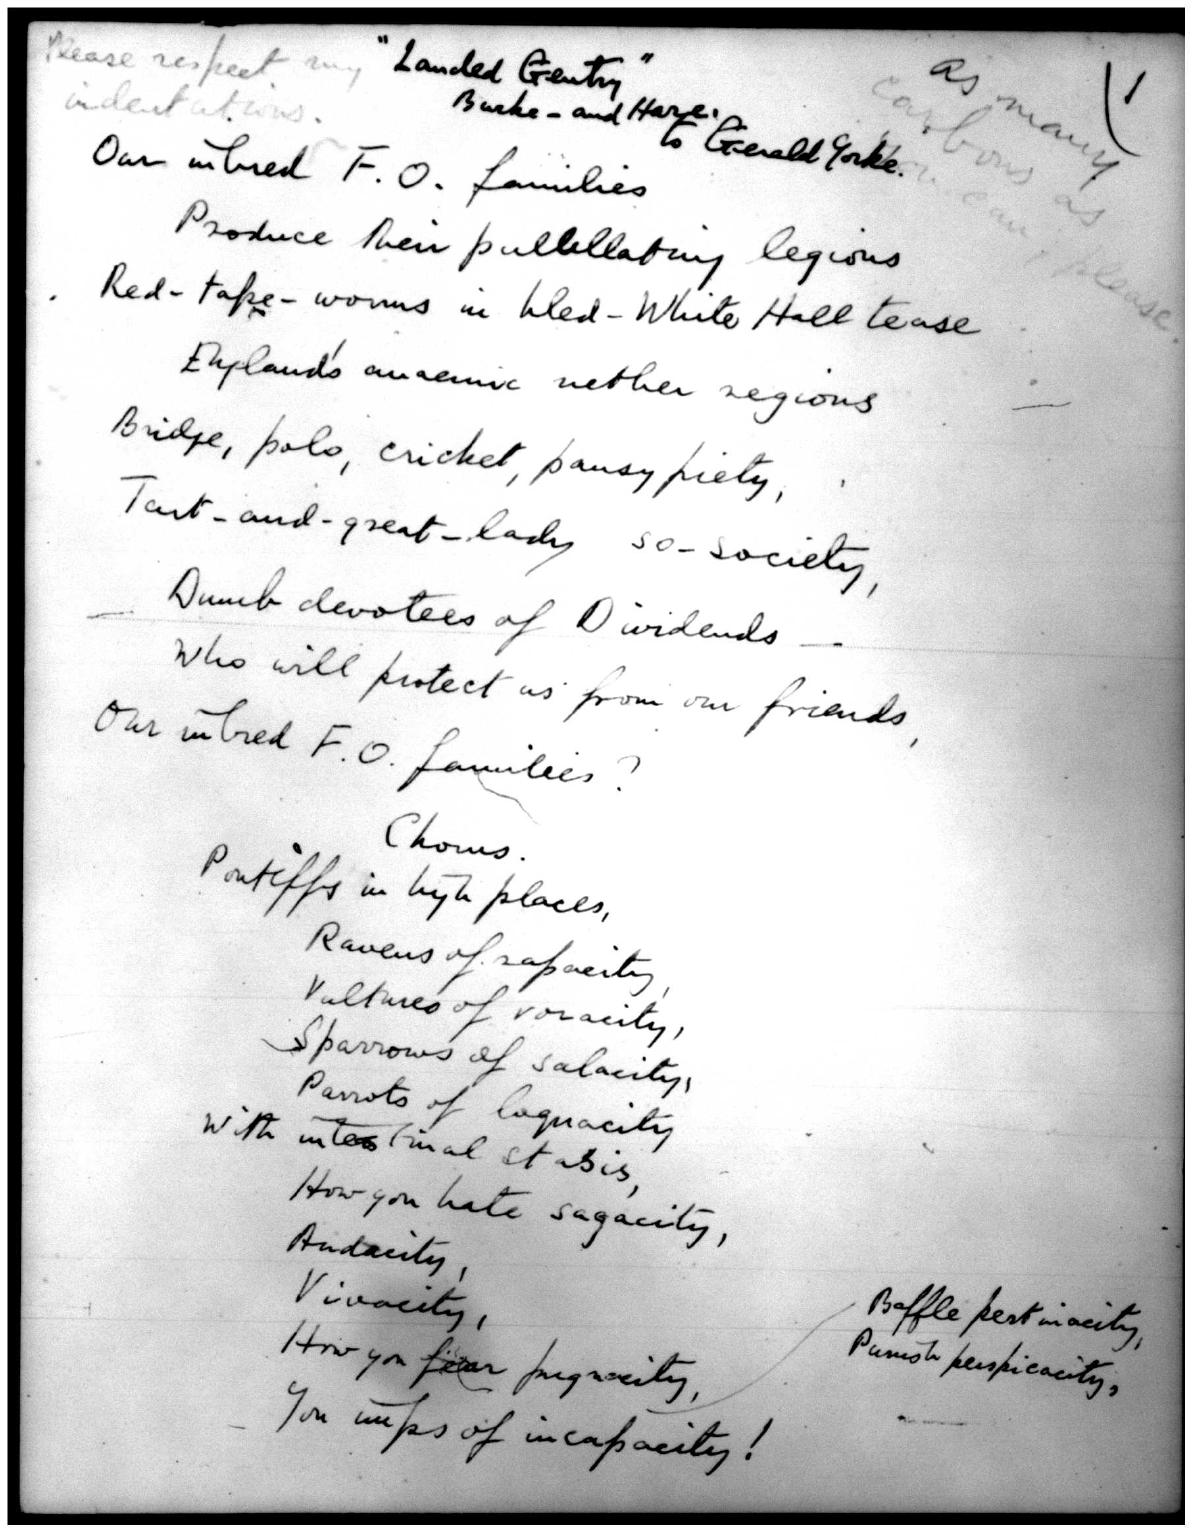 Please respect my
indentations.
"Landed Gentry"
Burke - and Hare.
to Gerald Yorke.
as many
carbons as
you can, please
1
Our inbred F. O. families
Produce their pullullating legions
Red-tape-worms in bled-White Hall tease
England's anaemic nether regions
Bridge, polo, cricket, pansy piety,
Tart-and-great-lady so-society,
Dumb devotees of Dividends —
Who will protect us from our friends,
Our inbred F. O. families?
Chorus.
Pontiffs in high places,
Ravens of rapacity,
Vultures of voracity,
Sparrows of salacity,
Parrots of loquacity
With intestinal stasis,
How you hate sagacity,
Audacity,
Vivacity,
How you fear pugnacity,
Baffle pertinacity,
Punish perspicacity,
You imps of incapacity!